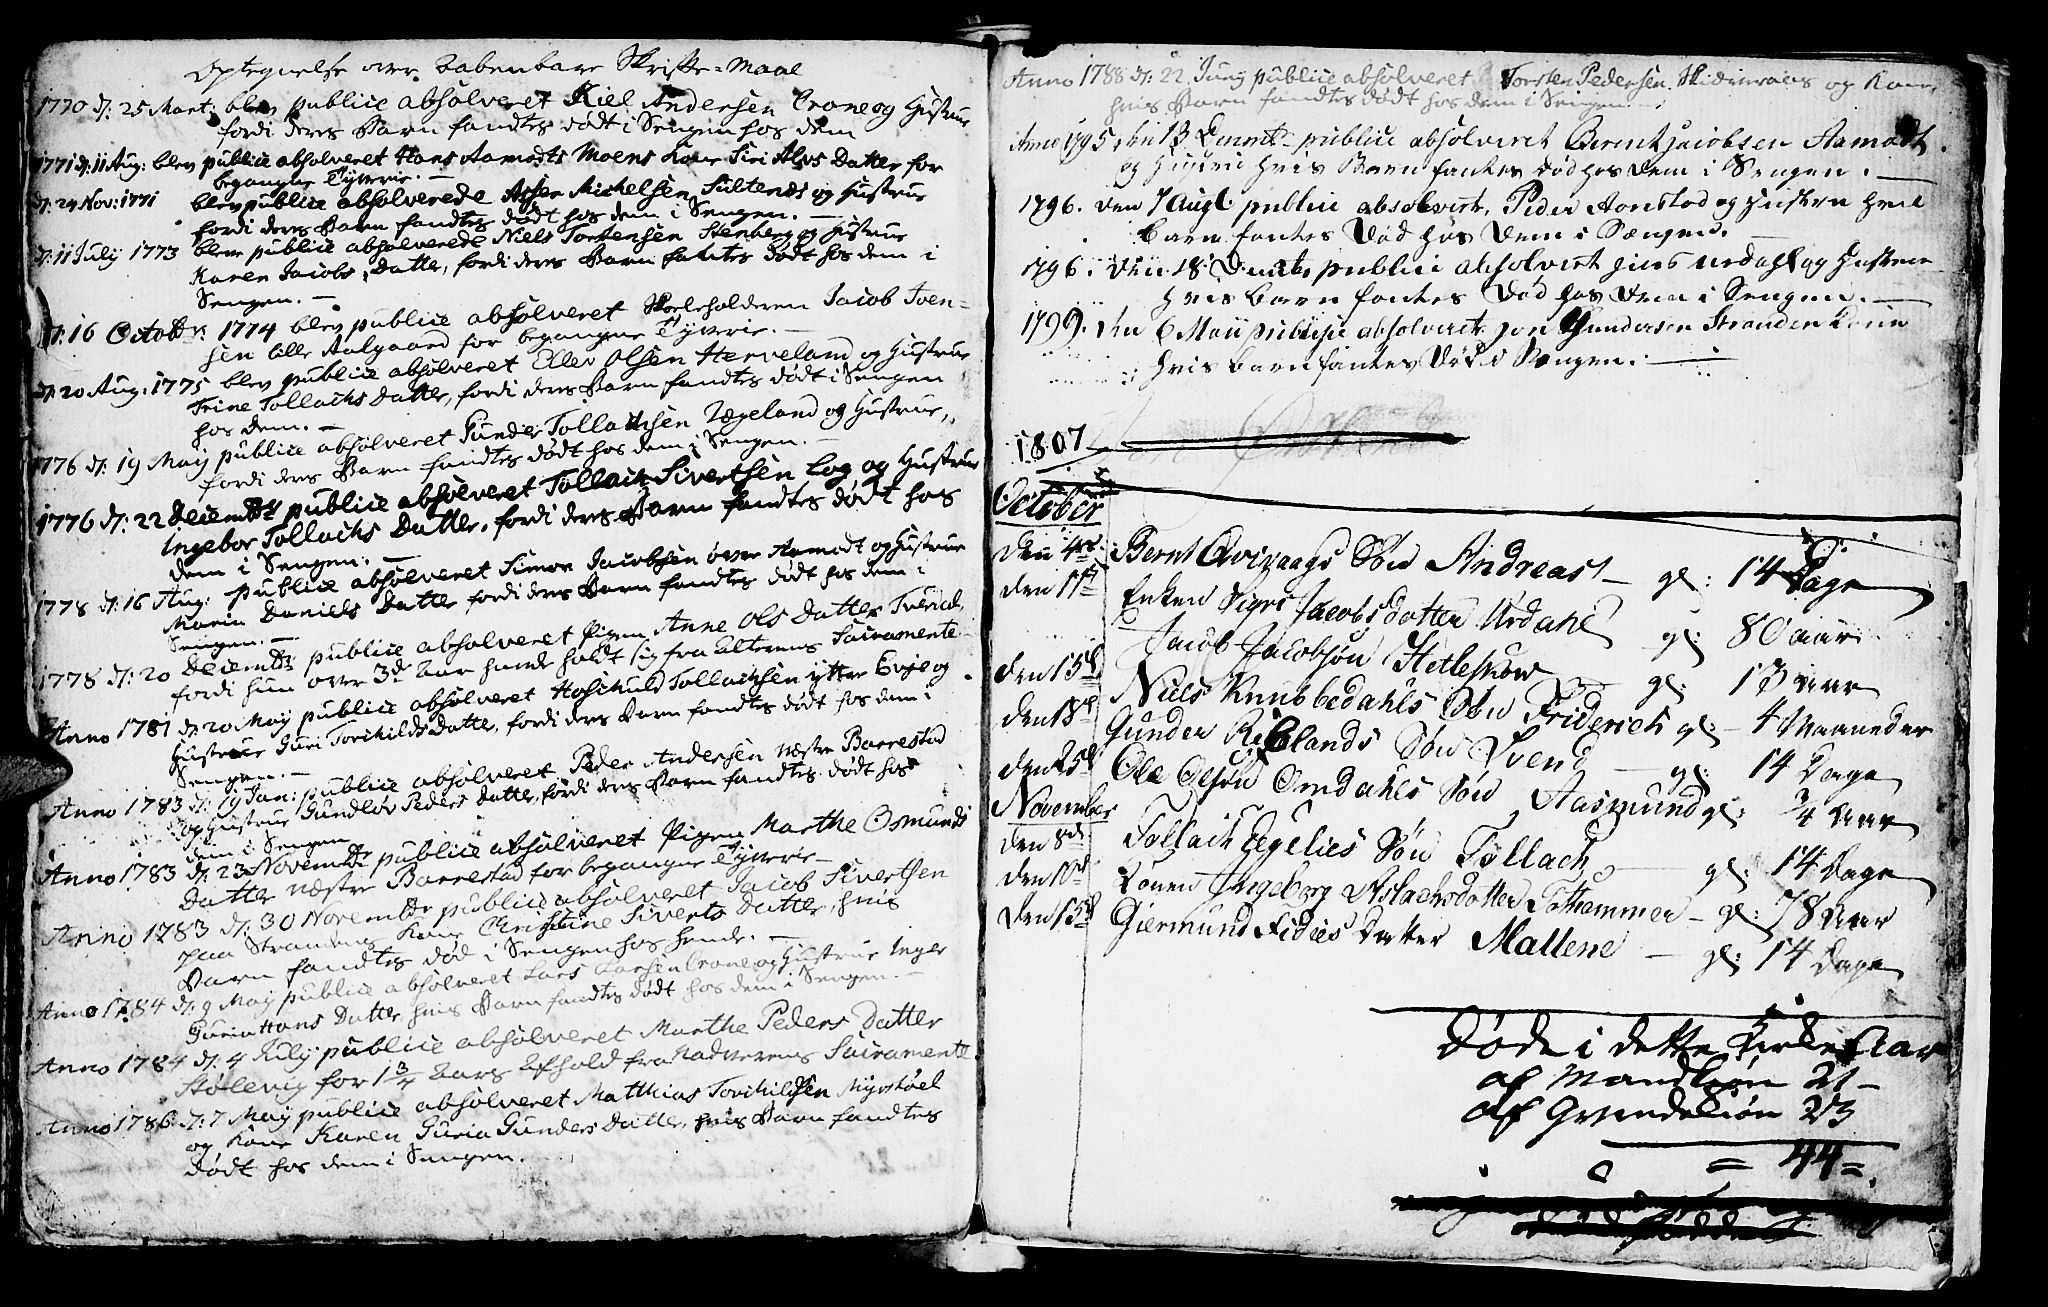 Optegnelse over Aabenbare Skrifte=Maal
1770 d: 25 Mart: blev publice absolveret Kiel Andersen Crone og Hustrue
fordi deres Barn fandtes dødt i Sengen hos dem
1771 d: 11 Aug: blev publice absolveret Hans Aamodts Moens Kone Siri Alvs Datter for
begangne Tyverie. —
d: 24 Nov: 1771 blev publice absolverede Asser Michelsen Sultenæs og Hustrue
fordi deres Barn fandtes dødt hos dem i Sengen. —
d: 11 July 1773 blev publice absolverede Niels Torstensen Stenberg og Hustrue
Karen Jacobs Datter, fordi deres Barn fantes dødt hos dem i
Sengen. —
d: 16 Octobr: 1774 blev publice absolveret Skoleholderen Jacob Iven-
sen lille Aalgaard for begangne Tyverie. —
d: 20 Aug: 1775 blev publice absolveret Ellev Olsen Herveland og Hustrue
Trine Tollachs Datter, fordi deres Barn fandtes dødt i Sengen
hos dem. —
1776 d: 19 May publice absolveret Gunder TollachsenÆgeland og Hustrue,
fordi deres Barn fandtes dødt hos dem i Sengen. —
1776 d: 22 Decembr publice absolveret Tollach Sivertsen Log og Hustrue
Ingebor Tollachs Datter, fordi deres Barn fandtes dødt hos
dem i Sengen. —
1778 d: 16 Aug: publice absolveret Simon Jacobsen øvre Aamodt og Hustrue
Maria Daniels Datter fordi deres Barn fandtes dødt hos dem i
Sengen. —
1778 d: 20 Decembr publice absolveret Pigen Anne Ols Datter
fordi hun over 3de Aar havde holdt sig fra Alterens Sacramente
Anno 1781 d: 20 May publice absolveret Hoschuld Tollachsen yttre Evje og
Hustrue Guri Torchilds Datter, fordi deres Barn fandtes dødt hos dem i
Sengen. —
Anno 1783 d: 19 Jan: publice absolveret Peder Andersen næstre Barrestad
og Hustrue Gundlør Peders Datter, fordi deres Barn fandtes dødt hos
dem i Sengen
Anno 1783 d: 23 Novembr publice absolveret Pigen Marthe Osmunds
Datter næstre Barrestad for begangne Tyverie —
Anno 1783 d: 30 Novembr publice absolveret Jacob Sivertsen
paa Strandens Kone Christine Siverts Datter, hvis
Barn fandtes død i Sengen hos hende. —
Anno 1784 d: 9 May publice absolveret Lars Larsen Crone og Hustrue Inger
Guria Hans Datter, hvis Barn fandtes dødt hos dem i Sengen. —
Anno 1784 d: 4 July publice absolveret Marthe Peders Datter
Stølevig for 1 3/4 Aars Afhold fra Nadverens Sacramente
Anno 1786 d: 7 May publice absolveret Matthias Torchildsen Myrstøel
og Kone Karen Guria Gunders Datter, hvis Barn fandtes
dødt hos dem i Sengen.
Anno 1788 d: 22 Juny publice absolveret Torsten Pedersen og Kone,
hvis Barn fandtes dødt hos dem i Sengen.
Anno 1795 den 13 publice absolveret Berent Jacobsen Aamodt
og Hustru hvis Barn fantes død hos dem i Sengen. —
1796. den 7 Aug publice absolvert, Peder Aonstad og Hustru hvis
Barn fantes død hos dem i Sængen. —
1796. den 18 publice absolvert Jens Urdahl og Hustrue
hvis barn fantes død hos dem i Sengen. —
1799. den 6 Maii publice absolveret Jon Gundersen Stranden Kone
hvis barn fantes død i Sengen. —
1807
October
den 4de Bernt Qvigaags Søn Andreas — gl: 14 Dage
den 11te Enken Sigri Jacobsdatter Urdahl gl: 80 aar
Jacob Jacobsøn Hetleskow — gl: 13 aar
den 15de Niels Knubbedahls Søn Friderich gl: 4 Maaneder
den 18de Gunder Røylands Søn Svend — gl: 14 Dage
den 25de Ole Olsøn Omdahls Søn Aasmund gl: 3/4 Aar
November
den 8de Tollach Egelies Søn Tollach — gl: 14 Dage
den 10de Konen Ingeborg Aslachsdatter Tothammer — gl: 78 Aar
den 15de Giermund Fidies Datter Mallene — gl: 14 Dage
Døde i dette Kirke Aar
af Mandkiøn 21 —
af Qvindekiøn 23
= 44 =